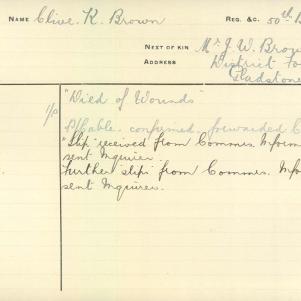 NAME Clive. R. Brown REG. &C. 50th B
NEXT OF KIN Mr J. W. Brow
ADDRESS District
Gladstone
"Died of Wounds"
confirmed. forwarded C
"Slip" received from Commrs. Inform
sent Inquirer.
Further "slip" from Commrs. Inf
sent Inquirer.